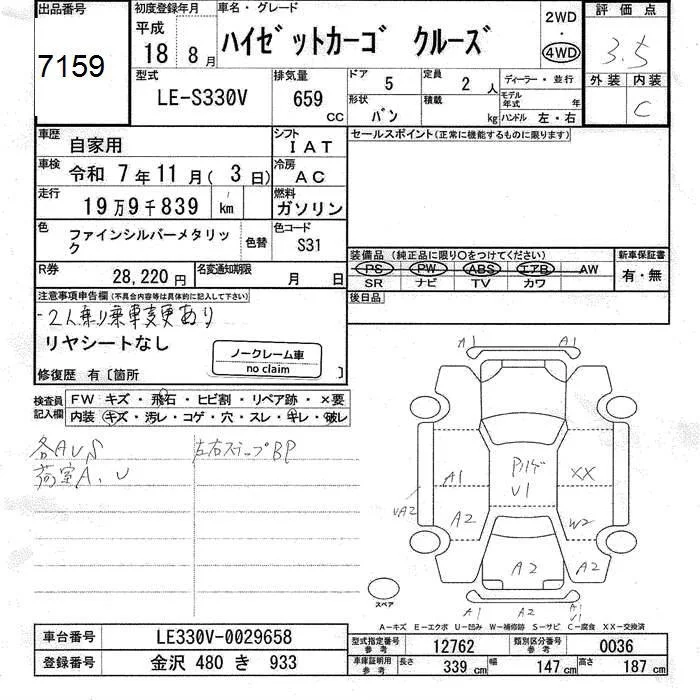 出品番号
7159
初度登録年月
平成
18年 8月
車名・グレード
ハイゼットカーゴ クルーズ
2WD
・
4WD
評価点
3.5
外装 内装
C
型式
LE-S330V
排気量
659
CC
ドア
5
定員
2人
ディーラー・並行
形状
バン
積載
kg
モデル年式 年
ハンドル 左・右
車歴
自家用
シフト
IAT
車検
令和 7年 11月( 3日)
冷房
AC
走行
19万9千839 km
燃料
ガソリン
色
ファインシルバーメタリック
色替
色コード
S31
R券
28,220円
名変通知期限
月 日
セールスポイント(正常に機能するものに限ります)
装備品 (純正品に限り〇をつけてください)
PS PW ABS エアB AW
SR ナビ TV カワ
新車保証書
有・無
後日品
注意事項申告欄(不具合内容等は具体的に記入して下さい)
2人乗り乗車変更あり
リヤシートなし
ノークレーム車
no claim
修復歴 有〔箇所 〕
検査員記入欄
FW キズ・飛石・ヒビ割・リペア跡・×要
内装・キズ・汚レ・コゲ・穴・スレ・キレ・破レ
各AUS
荷室A、U
左右ステップBP
A1
A1
A1
XX
U1
UA2
A2
W2
A2
A2
A2
A1
A2
A1
U1
スペア
A-キズ E-エクボ U-凹み W-補修跡 S-サビ C-腐食 XX-交換済
車台番号
LE330V-0029658
登録番号
金沢 480 き 933
型式指定番号
参考
12762
類別区分番号
参考
0036
車庫証明用
参考
長さ
339 cm
幅
147 cm
高さ
187 cm